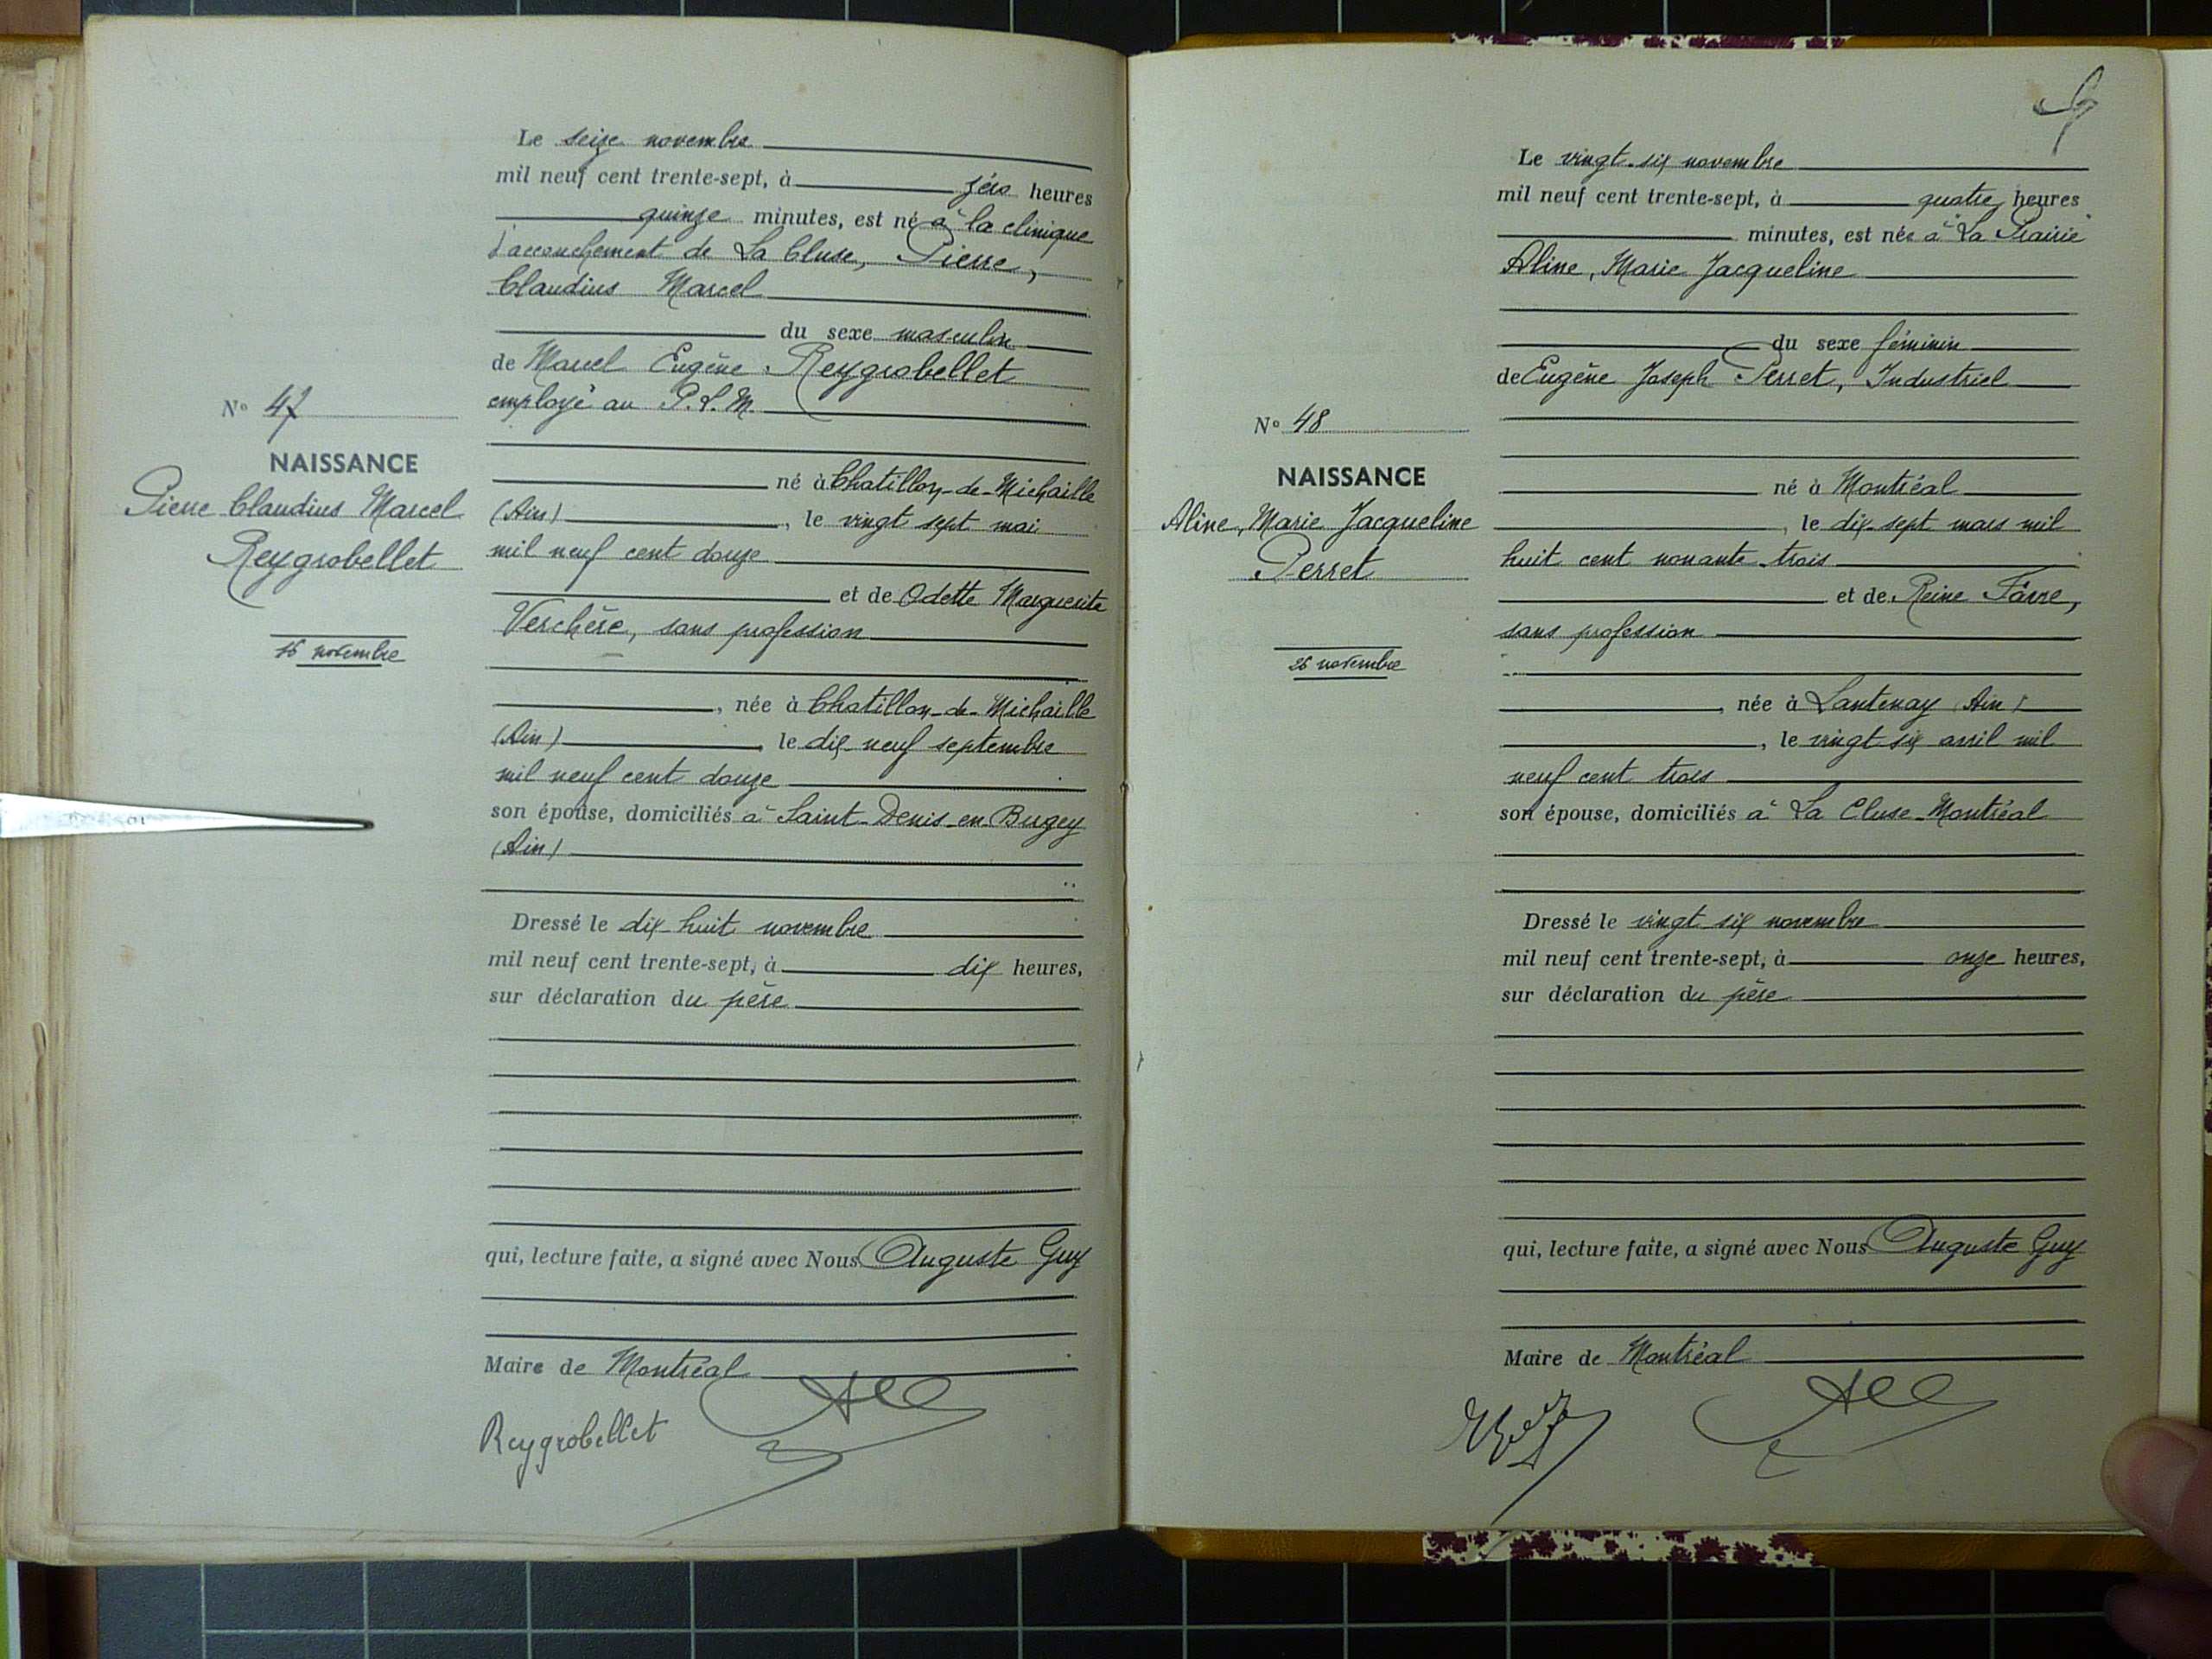 Le seize novembre
mil neuf cent trente-sept, à zéro heures
quinze minutes, est né à la clinique
d'accouchement de La Cluse, Pierre,
Claudius Marcel
du sexe masculin
de Marcel Eugène Reygrobellet
employé au P.L.M.
Nº 47
NAISSANCE
Pierre Claudius Marcel
Reygrobellet
16 novembre
né à Chatillon-de-Michaille
(Ain), le vingt sept mai
mil neuf cent douze
et de Odette Marguerite
Verchère, sans profession
, née à Chatillon-de-Michaille
(Ain) le dix-neuf septembre
mil neuf cent douze
son épouse, domiciliés à Saint-Denis-en-Bugey
(Ain)
Dressé le dix-huit novembre
mil neuf cent trente-sept, à dix heures,
sur déclaration du père
qui, lecture faite, a signé avec Nous Auguste Guy
Maire de Montréal
Reygrobellet
Le vingt-six novembre
mil neuf cent trente-sept, à quatre heures
minutes, est née à "La Prairie"
Aline, Marie Jacqueline
du sexe féminin
de Eugène Joseph Perret, Industriel
Nº 48
NAISSANCE
Aline, Marie Jacqueline
Perret
26 novembre
né à Montréal
, le dix-sept mars mil
huit cent nonante-trois
et de Reine Favre,
sans profession
, née à Lantenay (Ain)
, le vingt-six avril mil
neuf cent trois
son épouse, domiciliés à La Cluse-Montréal
Dressé le vingt-six novembre
mil neuf cent trente-sept, à onze heures,
sur déclaration du père
qui, lecture faite, a signé avec Nous Auguste Guy
Maire de Montréal